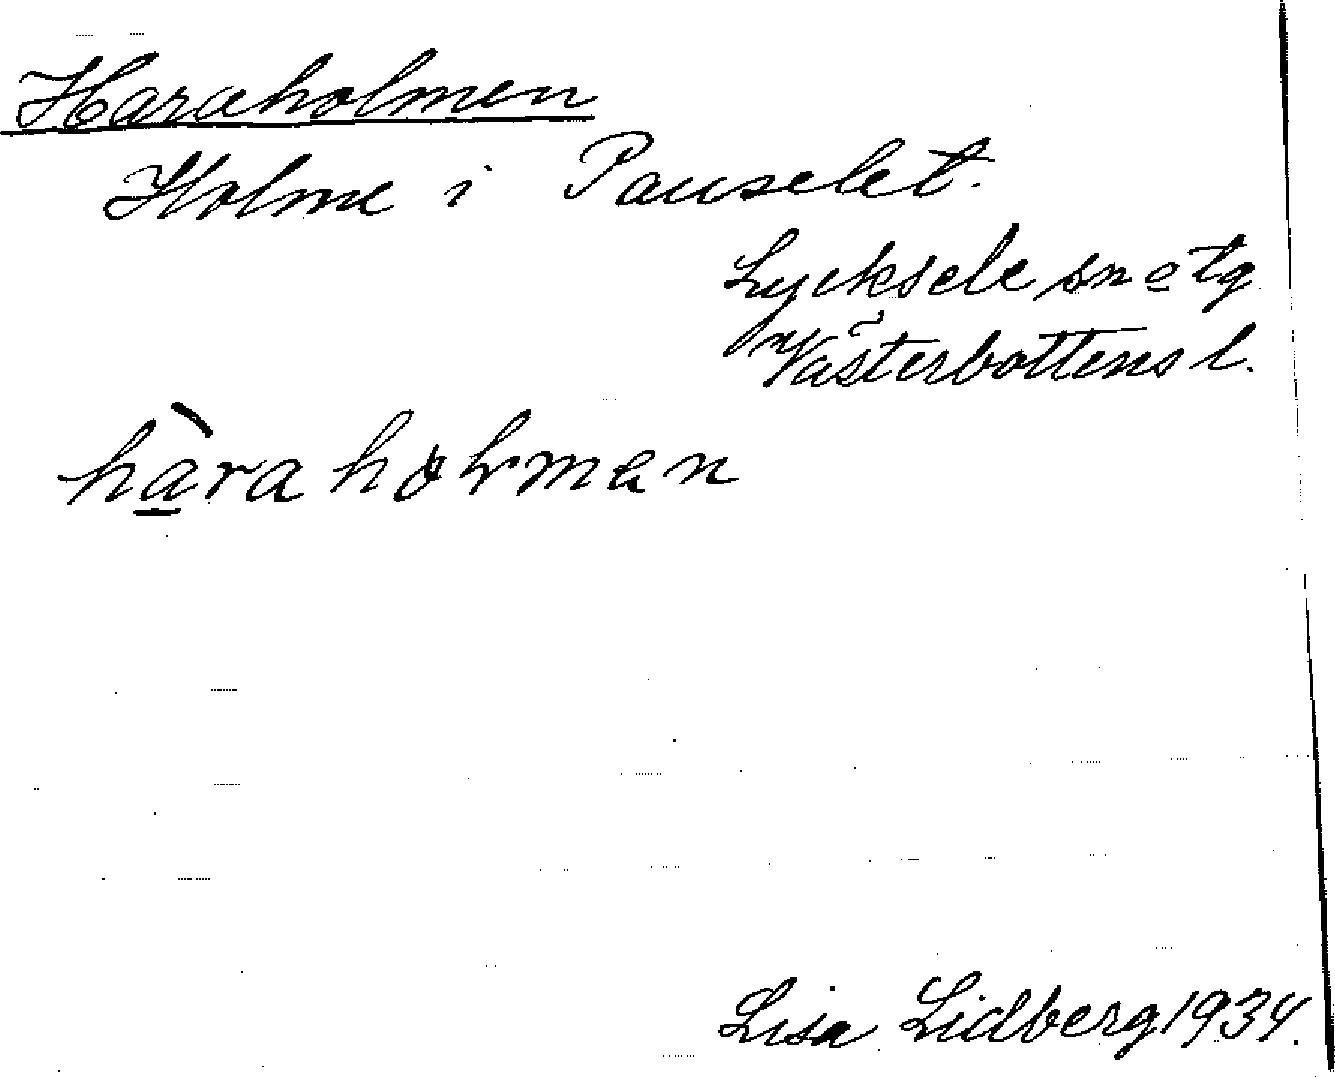 Haraholmen
Holme i Pauselet.
Lycksele sn o tg
Västerbottens l.
hàra holmen
Lisa Lidberg 1934.